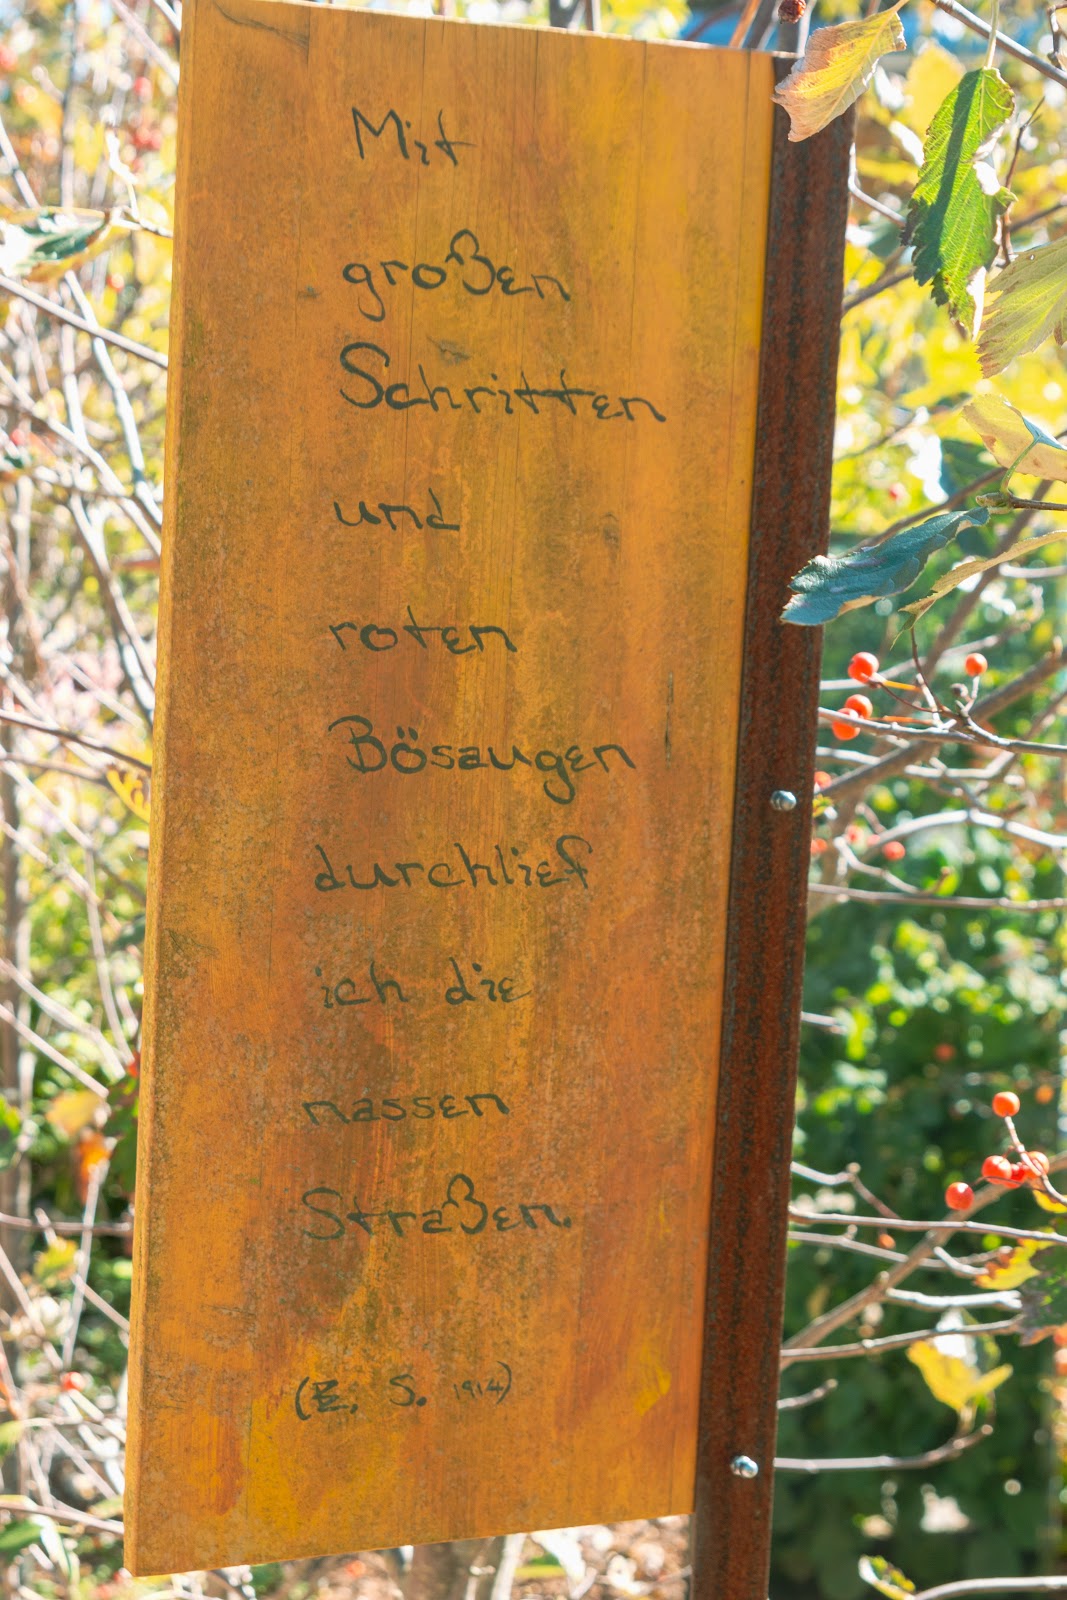 Mit
großen
Schritten
und
roten
Bösaugen
durchlief
ich die
nassen
Straßen.
(E. S. 1914)